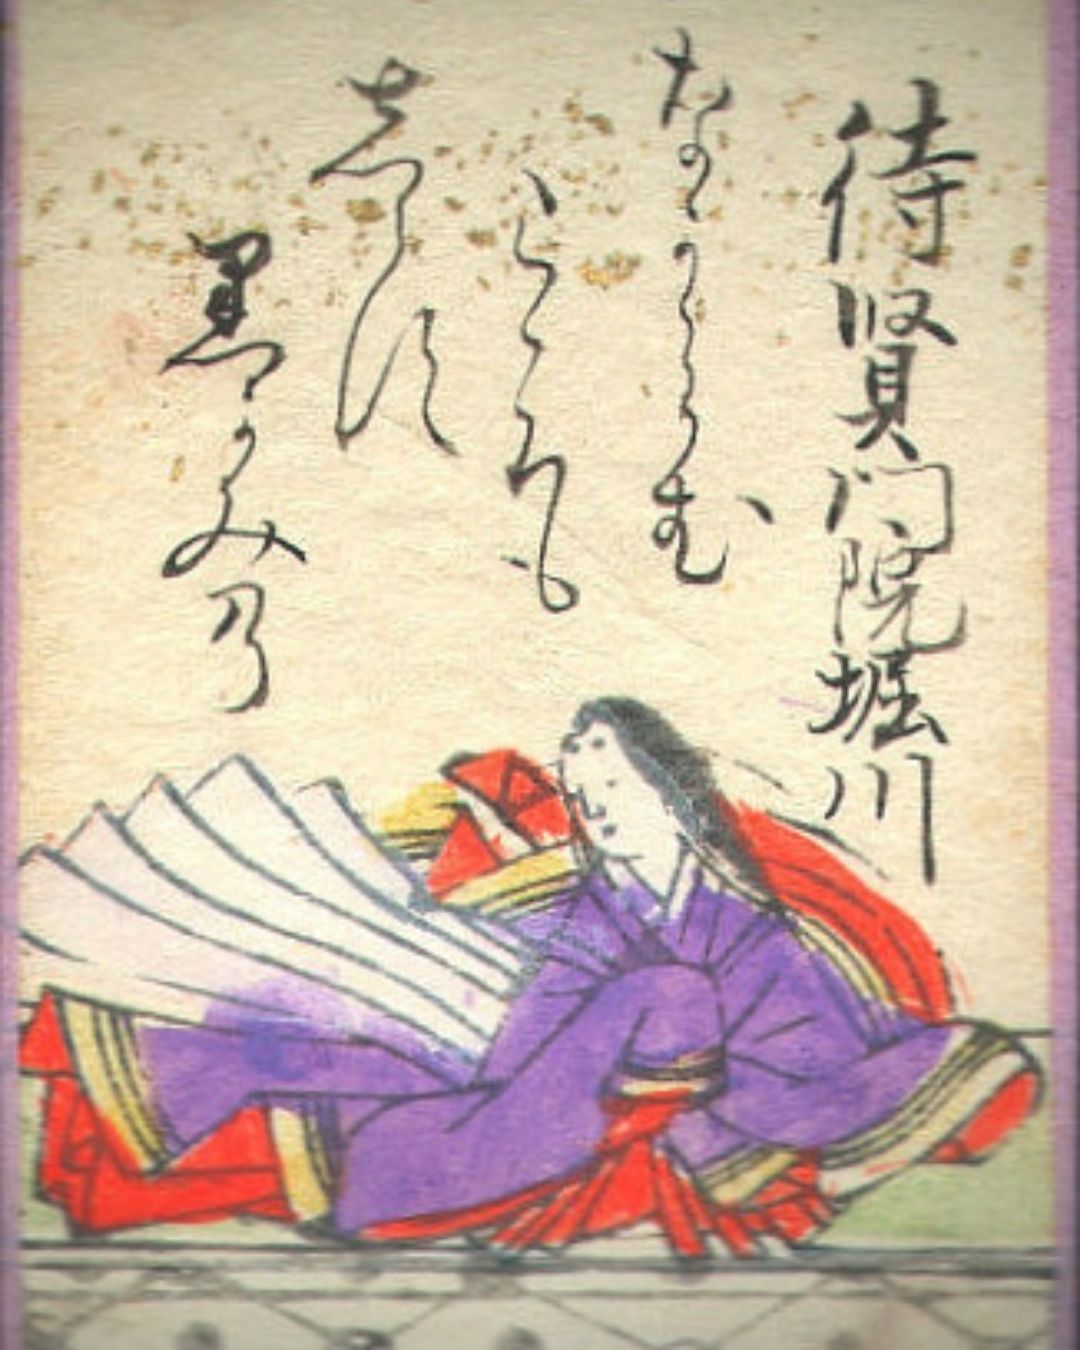 待賢門院堀川
なかゝらむ
こゝろも
しらす
黒かみの